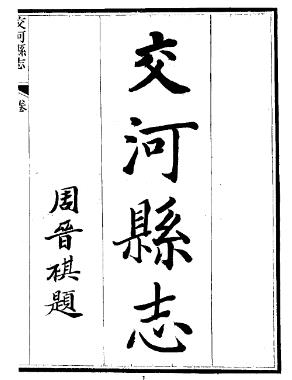 交河縣志
周晉祺題
交河縣志
卷